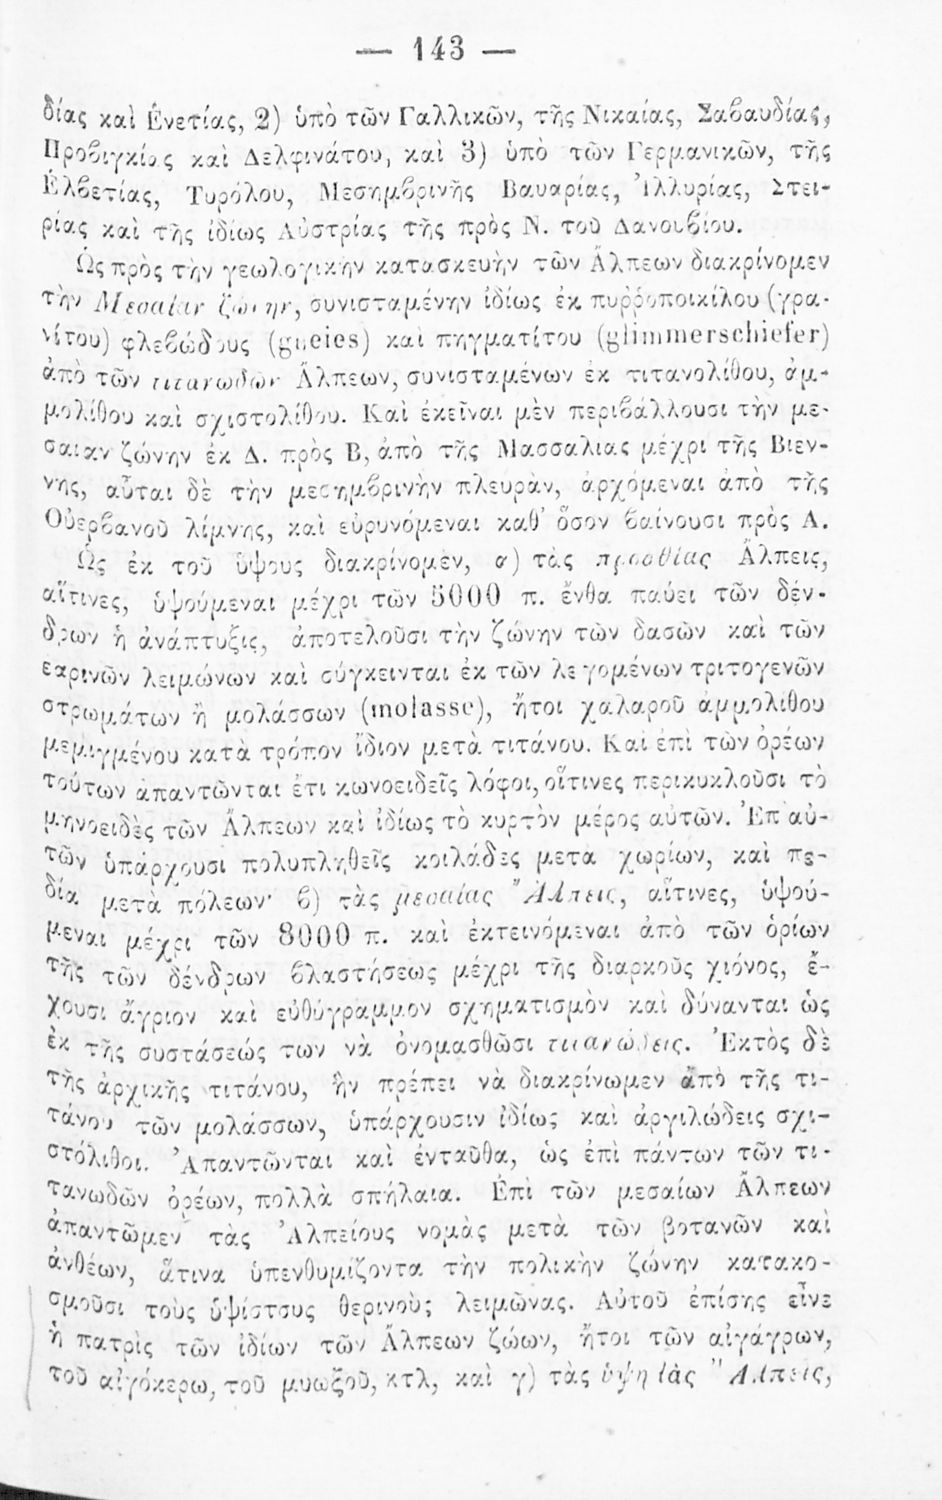 — 143 —
δίας καὶ Ἑνετίας, 2) ὑπὸ τῶν Γαλλικῶν, τῆς Νικαίας, Σαβαυδίας,
Προβιγκίας καὶ Δελφινάτου, καὶ 3) ὑπὸ τῶν Γερμανικῶν, τῆς
Ἑλβετίας, Τυρόλου, Μεσημβρινῆς Βαυαρίας, Ἰλλυρίας, Στει-
ρίας καὶ τῆς ἰδίως Αὐστρίας τῆς πρὸς Ν. τοῦ Δανουβίου.
Ὡς πρὸς τὴν γεωλογικὴν κατασκευὴν τῶν Ἄλπεων διακρίνομεν
τὴν Μεσαίαν ζώνην, συνισταμένην ἰδίως ἐκ πυῤῥοποικίλου (γρα-
νίτου) φλεβώδους (gneies) καὶ πηγματίτου (glimmerschiefer)
ἀπὸ τῶν τιτανωδῶν Ἄλπεων, συνισταμένων ἐκ τιτανολίθου, ἀμ-
μολίθου καὶ σχιστολίθου. Καὶ ἐκεῖναι μὲν περιβάλλουσι τὴν με-
σαιαν ζώνην ἐκ Δ. πρὸς Β, ἀπὸ τῆς Μασσαλιας μέχρι τῆς Βιεν-
νης, αὗται δὲ τὴν μεσημβρινὴν πλευρὰν, ἀρχόμεναι ἀπὸ τῆς
Οὐερβανοῦ λίμνης, καὶ εὐρυνόμεναι καθ' ὅσον βαίνουσι πρὸς Α.
Ὡς ἐκ τοῦ ὕψους διακρίνομεν, α) τὰς προσθίας Ἄλπεις,
αἵτινες, ὑψούμεναι μέχρι τῶν 5000 π. ἔνθα παύει τῶν δέν-
δρων ἡ ἀνάπτυξις, ἀποτελοῦσι τὴν ζώνην τῶν δασῶν καὶ τῶν
εαρινῶν λειμώνων καὶ σύγκεινται ἐκ τῶν λεγομένων τριτογενῶν
στρωμάτων ἢ μολάσσων (molasse), ἤτοι χαλαροῦ ἀμμολίθου
μεμιγμένου κατὰ τρόπον ἴδιον μετὰ τιτάνου. Καὶ ἐπὶ τῶν ὀρέων
τούτων ἀπαντῶνται ἔτι κωνοειδεῖς λόφοι, οἵτινες περικυκλοῦσι τὸ
μηνοειδὲς τῶν Ἄλπεων καὶ ἰδίως τὸ κυρτὸν μέρος αὐτῶν. Ἐπ αὐ-
τῶν ὑπάρχουσι πολυπληθεῖς κοιλάδες μετὰ χωρίων, καὶ πε-
δία μετὰ πόλεων· β) τὰς μεσαίας Ἄλπεις, αἵτινες, ὑψού-
μεναι μέχρι τῶν 8000 π. καὶ ἐκτεινόμεναι ἀπὸ τῶν ὁρίων
τῆς τῶν δένδρων βλαστήσεως μέχρι τῆς διαρκοῦς χιόνος, ἔ-
χουσι ἄγριον καὶ εὐθύγραμμον σχηματισμὸν καὶ δύνανται ὡς
ἐκ τῆς συστάσεώς των νὰ ὀνομασθῶσι τιτανώδεις. Ἐκτὸς δὲ
τῆς ἀρχικῆς τιτάνου, ἣν πρέπει νὰ διακρίνωμεν ἀπὸ τῆς τι-
τάνου τῶν μολάσσων, ὑπάρχουσιν ἰδίως καὶ ἀργιλώδεις σχι-
στόλιθοι. Ἀπαντῶνται καὶ ἐνταῦθα, ὡς ἐπὶ πάντων τῶν τι-
τανωδῶν ὀρέων, πολλὰ σπήλαια. Ἐπὶ τῶν μεσαίων Ἄλπεων
ἀπαντῶμεν τὰς Ἀλπείους νομὰς μετὰ τῶν βοτανῶν καὶ
ἀνθέων, ἅτινα ὑπενθυμίζοντα τὴν πολικὴν ζώνην κατακο-
σμοῦσι τοὺς ὑψίστους θερινοὺς λειμῶνας. Αὐτοῦ ἐπίσης εἶνε
ἡ πατρὶς τῶν ἰδίων τῶν Ἄλπεων ζώων, ἤτοι τῶν αἰγάγρων,
τοῦ αἰγόκερω, τοῦ μυωξοῦ, κτλ, καὶ γ) τὰς ὑψηλὰς Ἄλπεις,